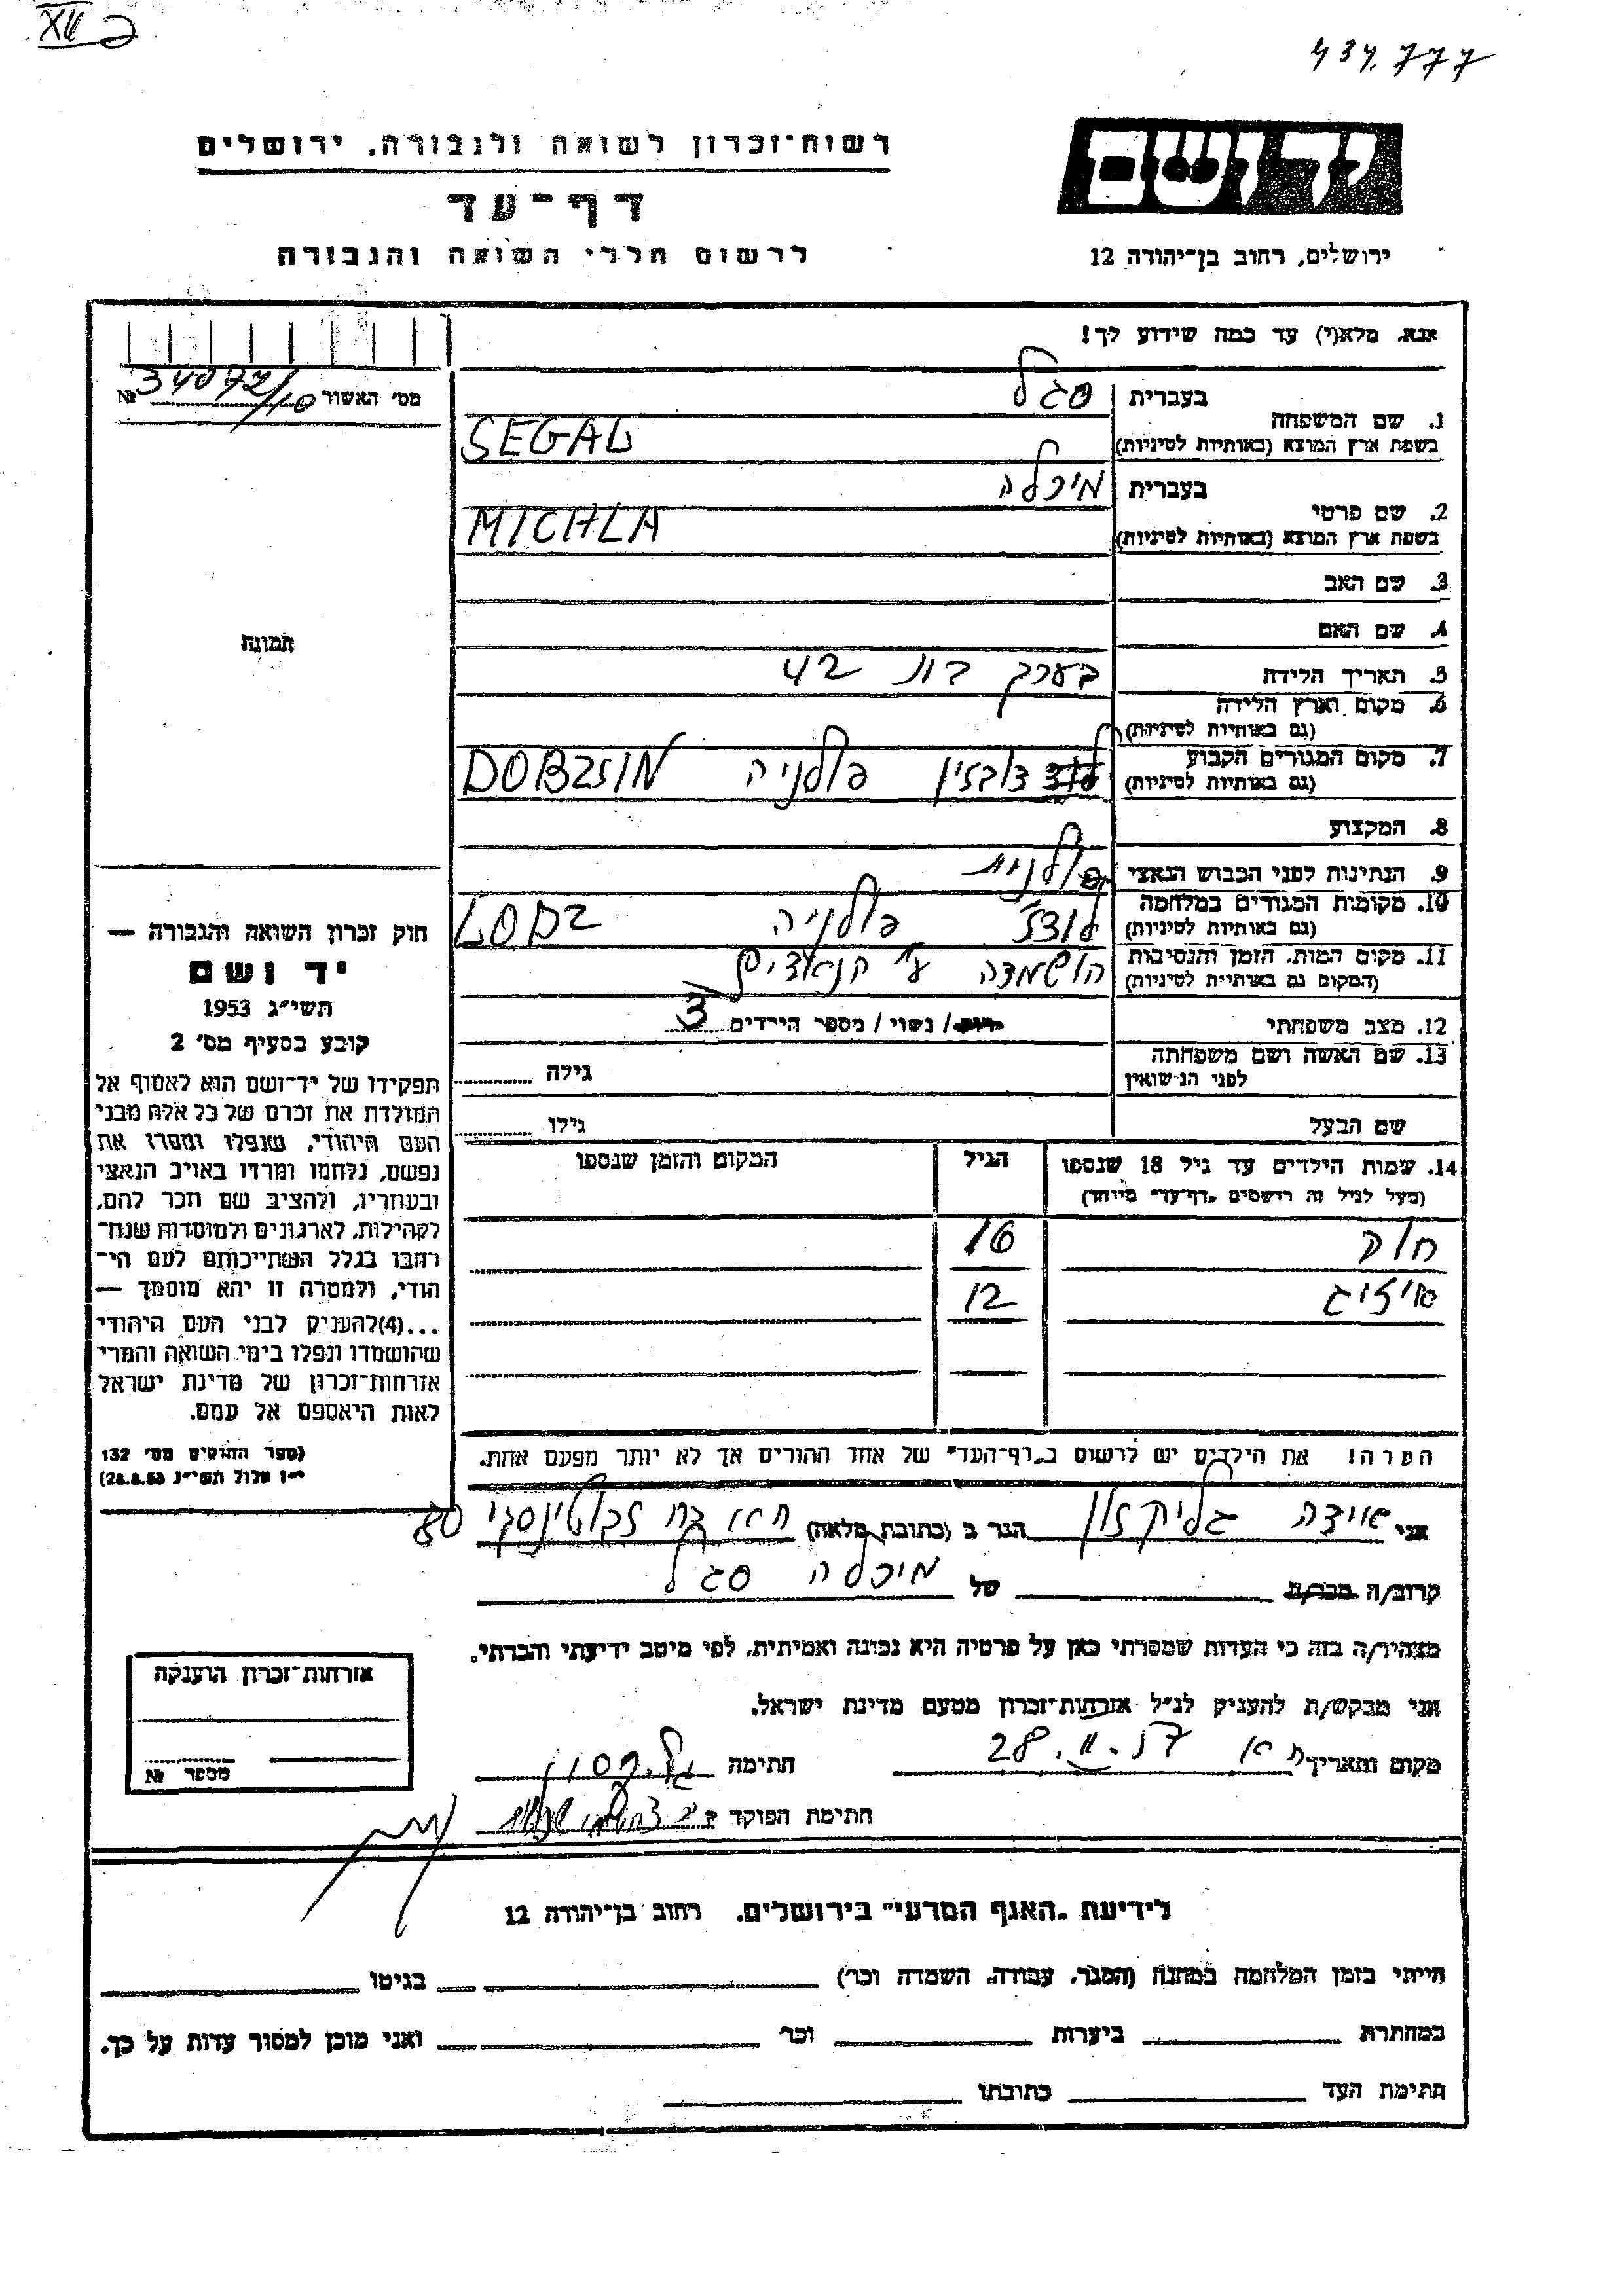 XII
434.777
רשות־זכרון לשואה ולגבורה, ירושלים
יד ושם
דף־עד
לרשום חללי השואה והגבורה
ירושלים, רחוב בן־יהודה 12
אנא. מלא(י) עד כמה שידוע לך!
מס' האשור 34072/10 №
1. שם המשפחה
בעברית סגל
בשפת ארץ המוצא (באותיות לטיניות) SEGAL
2. שם פרטי
בעברית מיכלה
בשפת ארץ המוצא (באותיות לטיניות) MICHLA
3. שם האב
4. שם האם
תמונה
5. תאריך הלידה בערך בת 42
6. מקום וארץ הלידה
(גם באותיות לטיניות)
7. מקום המגורים הקבוע
(גם באותיות לטיניות) דובזין פולניה DOBZSIN
8. המקצוע
9. הנתינות לפני הכבוש הנאצי פולנית
10. מקומות המגורים במלחמה
(גם באותיות לטיניות) לודז' פולניה LODZ
11. מקום המות, הזמן והנסיבות
(המקום גם באותיות לטיניות) הושמדה ע"י הנאצים
12. מצב משפחתי רווק / נשוי / מספר הילדים 3
13. שם האשה ושם משפחתה
לפני הנישואין
גילה
שם הבעל גילו
14. שמות הילדים עד גיל 18 שנספו הגיל המקום והזמן שנספו
(מעל לגיל זה רושמים „דף־עד" מיוחד)
16
12
הערה! את הילדים יש לרשום ב„דף־העד" של אחד ההורים אך לא יותר מפעם אחת.
חוק זכרון השואה והגבורה —
יד ושם
תשי"ג 1953
קובע בסעיף מס' 2
תפקידו של יד־ושם הוא לאסוף אל
המולדת את זכרם של כל אלה מבני
העם היהודי, שנפלו ומסרו את
נפשם, נלחמו ומרדו באויב הנאצי
ובעוזריו, ולהציב שם וזכר להם,
לקהילות, לארגונים ולמוסדות שנח־
רבו בגלל השתייכותם לעם הי־
הודי, ולמטרה זו יהא מוסמך —
...(4)להעניק לבני העם היהודי
שהושמדו ונפלו בימי השואה והמרי
אזרחות־זכרון של מדינת ישראל
לאות היאספם אל עמם.
(ספר החוקים מס' 132
י"ז אלול תשי"ג 28.8.53)
אני אידה גליקזון הגר ב (כתובת מלאה) ת"א רח' ז'בוטינסקי 80
קרוב/ה מכר/ה של מיכלה סגל
מצהיר/ה בזה כי העדות שמסרתי כאן על פרטיה היא נכונה ואמיתית, לפי מיטב ידיעתי והכרתי.
אני מבקש/ת להעניק לנ"ל אזרחות־זכרון מטעם מדינת ישראל.
מקום ותאריך ת"א 28.11.57 חתימה
חתימת הפוקד
אזרחות־זכרון הוענקה
מספר №
לידיעת „האגף המדעי" בירושלים, רחוב בן־יהודה 12
הייתי בזמן המלחמה במחנה (הסגר, עבודה, השמדה וכו') בגיטו
במחתרת ביערות וכו' ואני מוכן למסור עדות על כך.
חתימת העד כתובתו